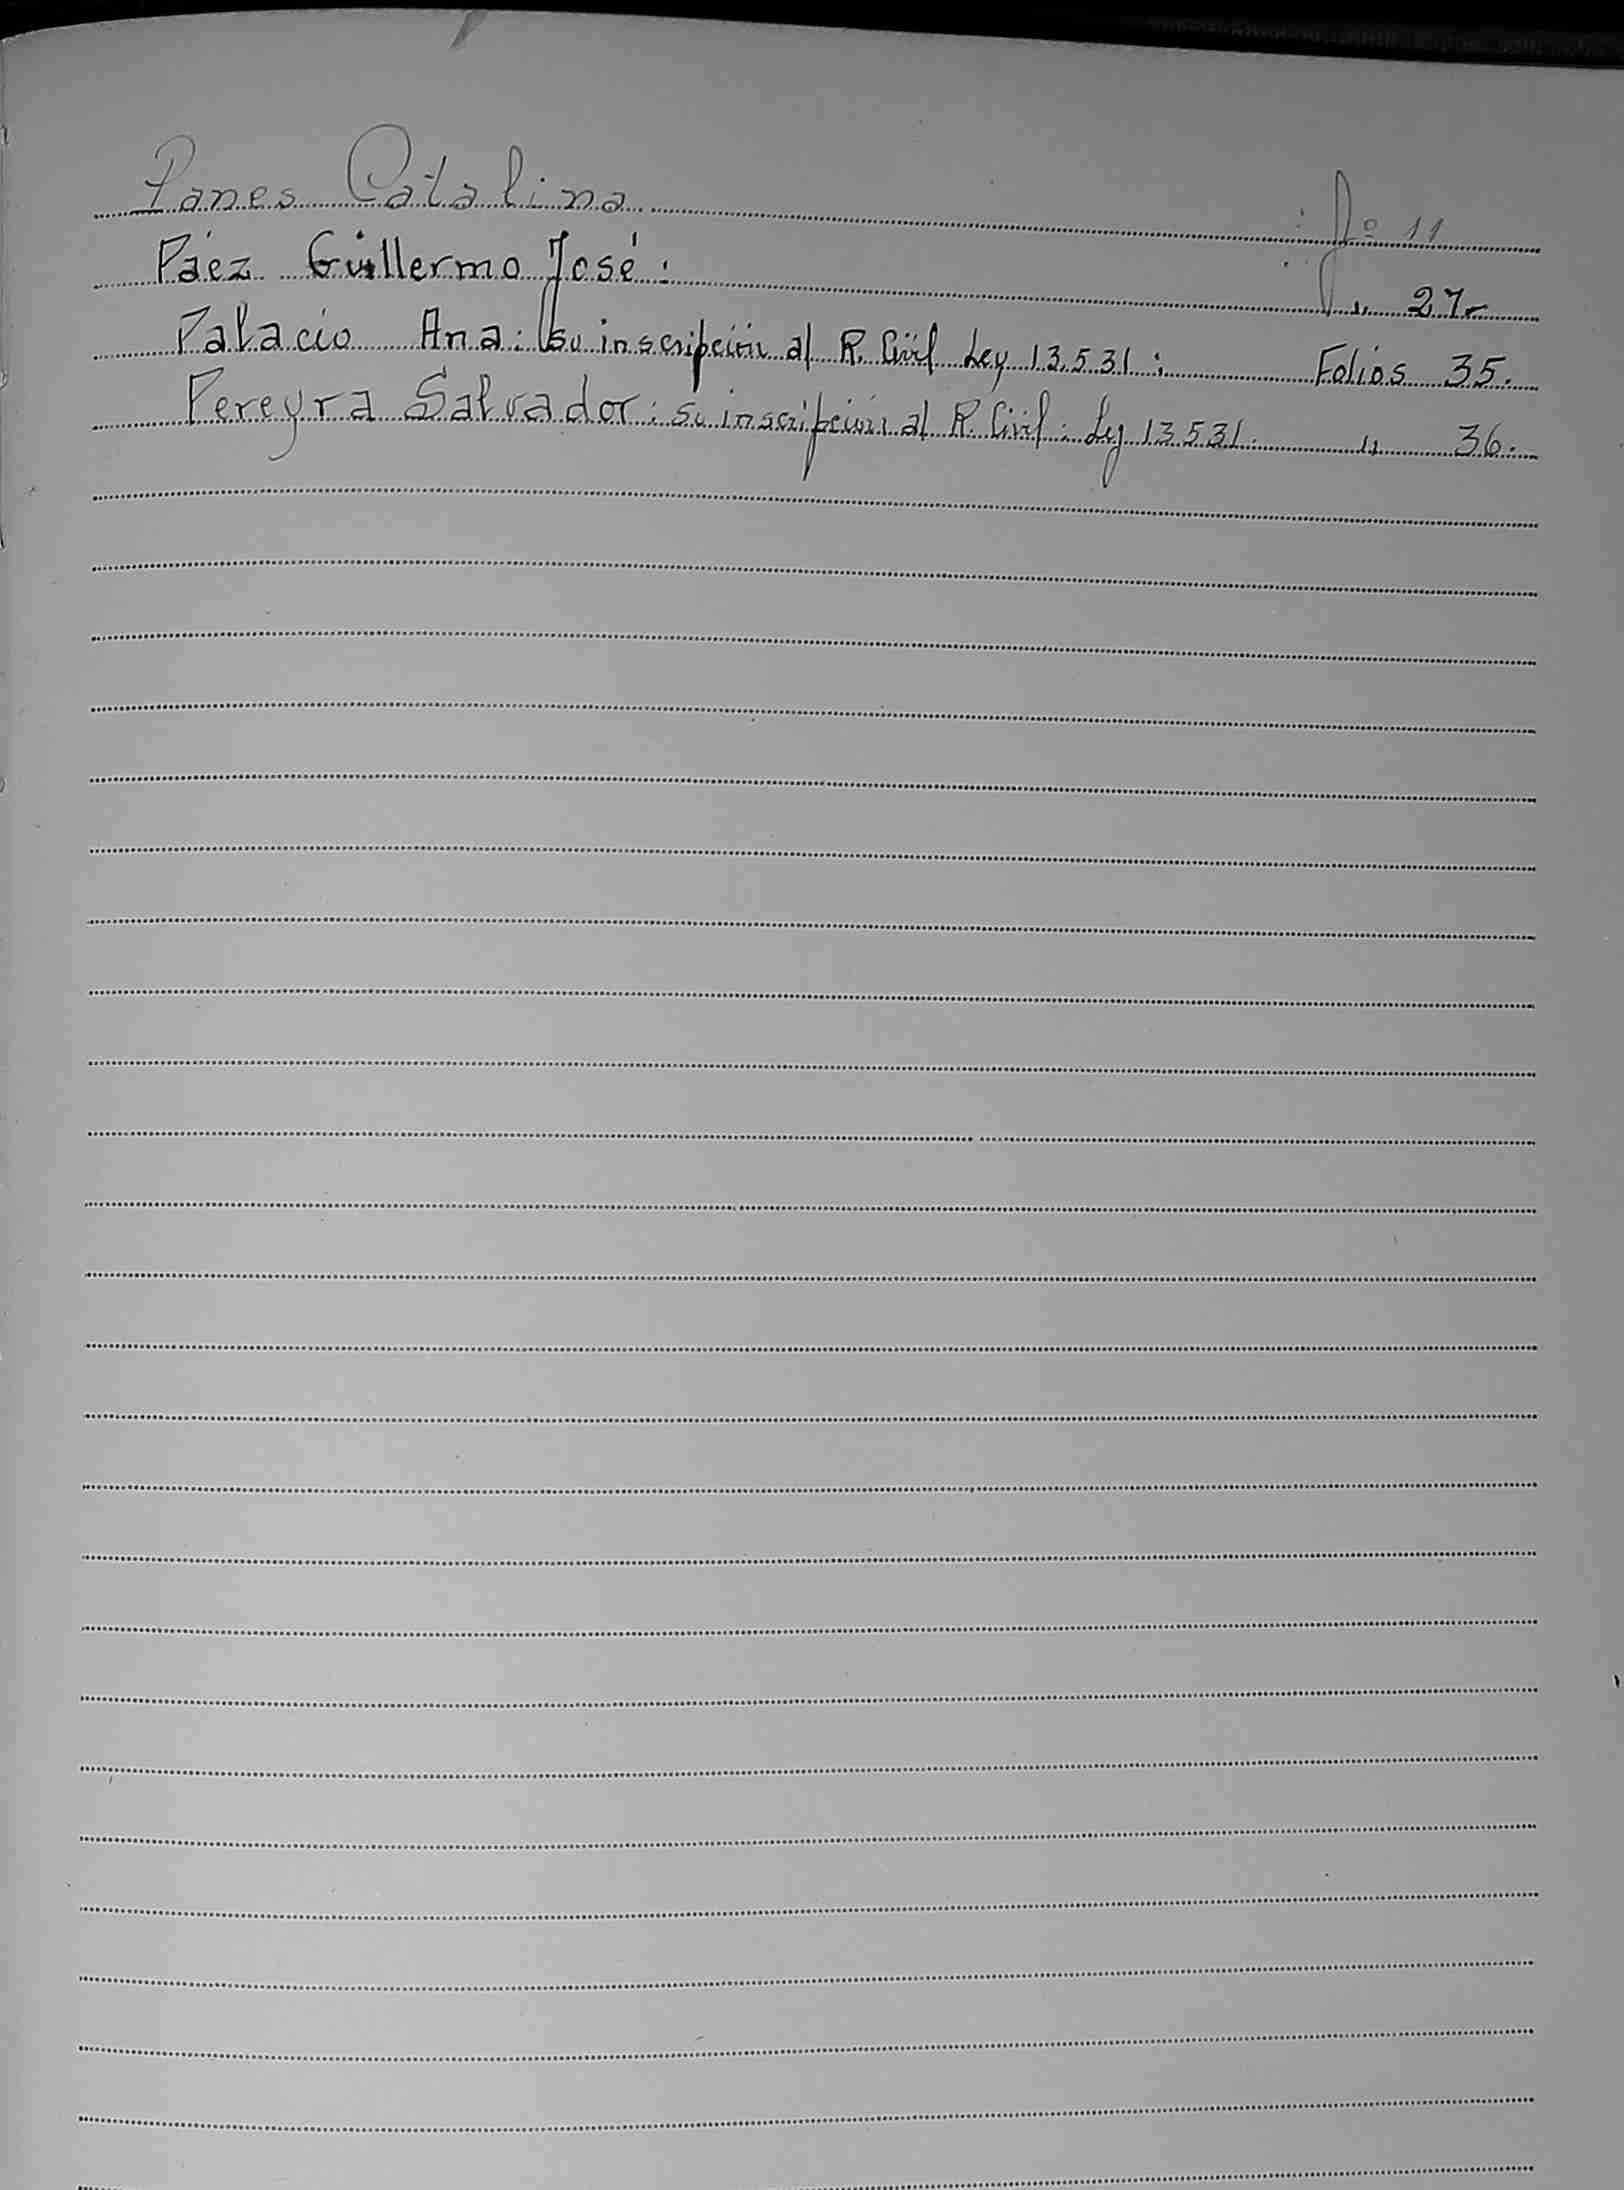 Panes Catalina fº 11
Páez Guillermo José: " 27-
Palacio Ana: su inscripción al R. Civil Ley 13.531: Folios 35.
Pereyra Salvador: su inscripción al R. Civil: Ley 13531. " 36.